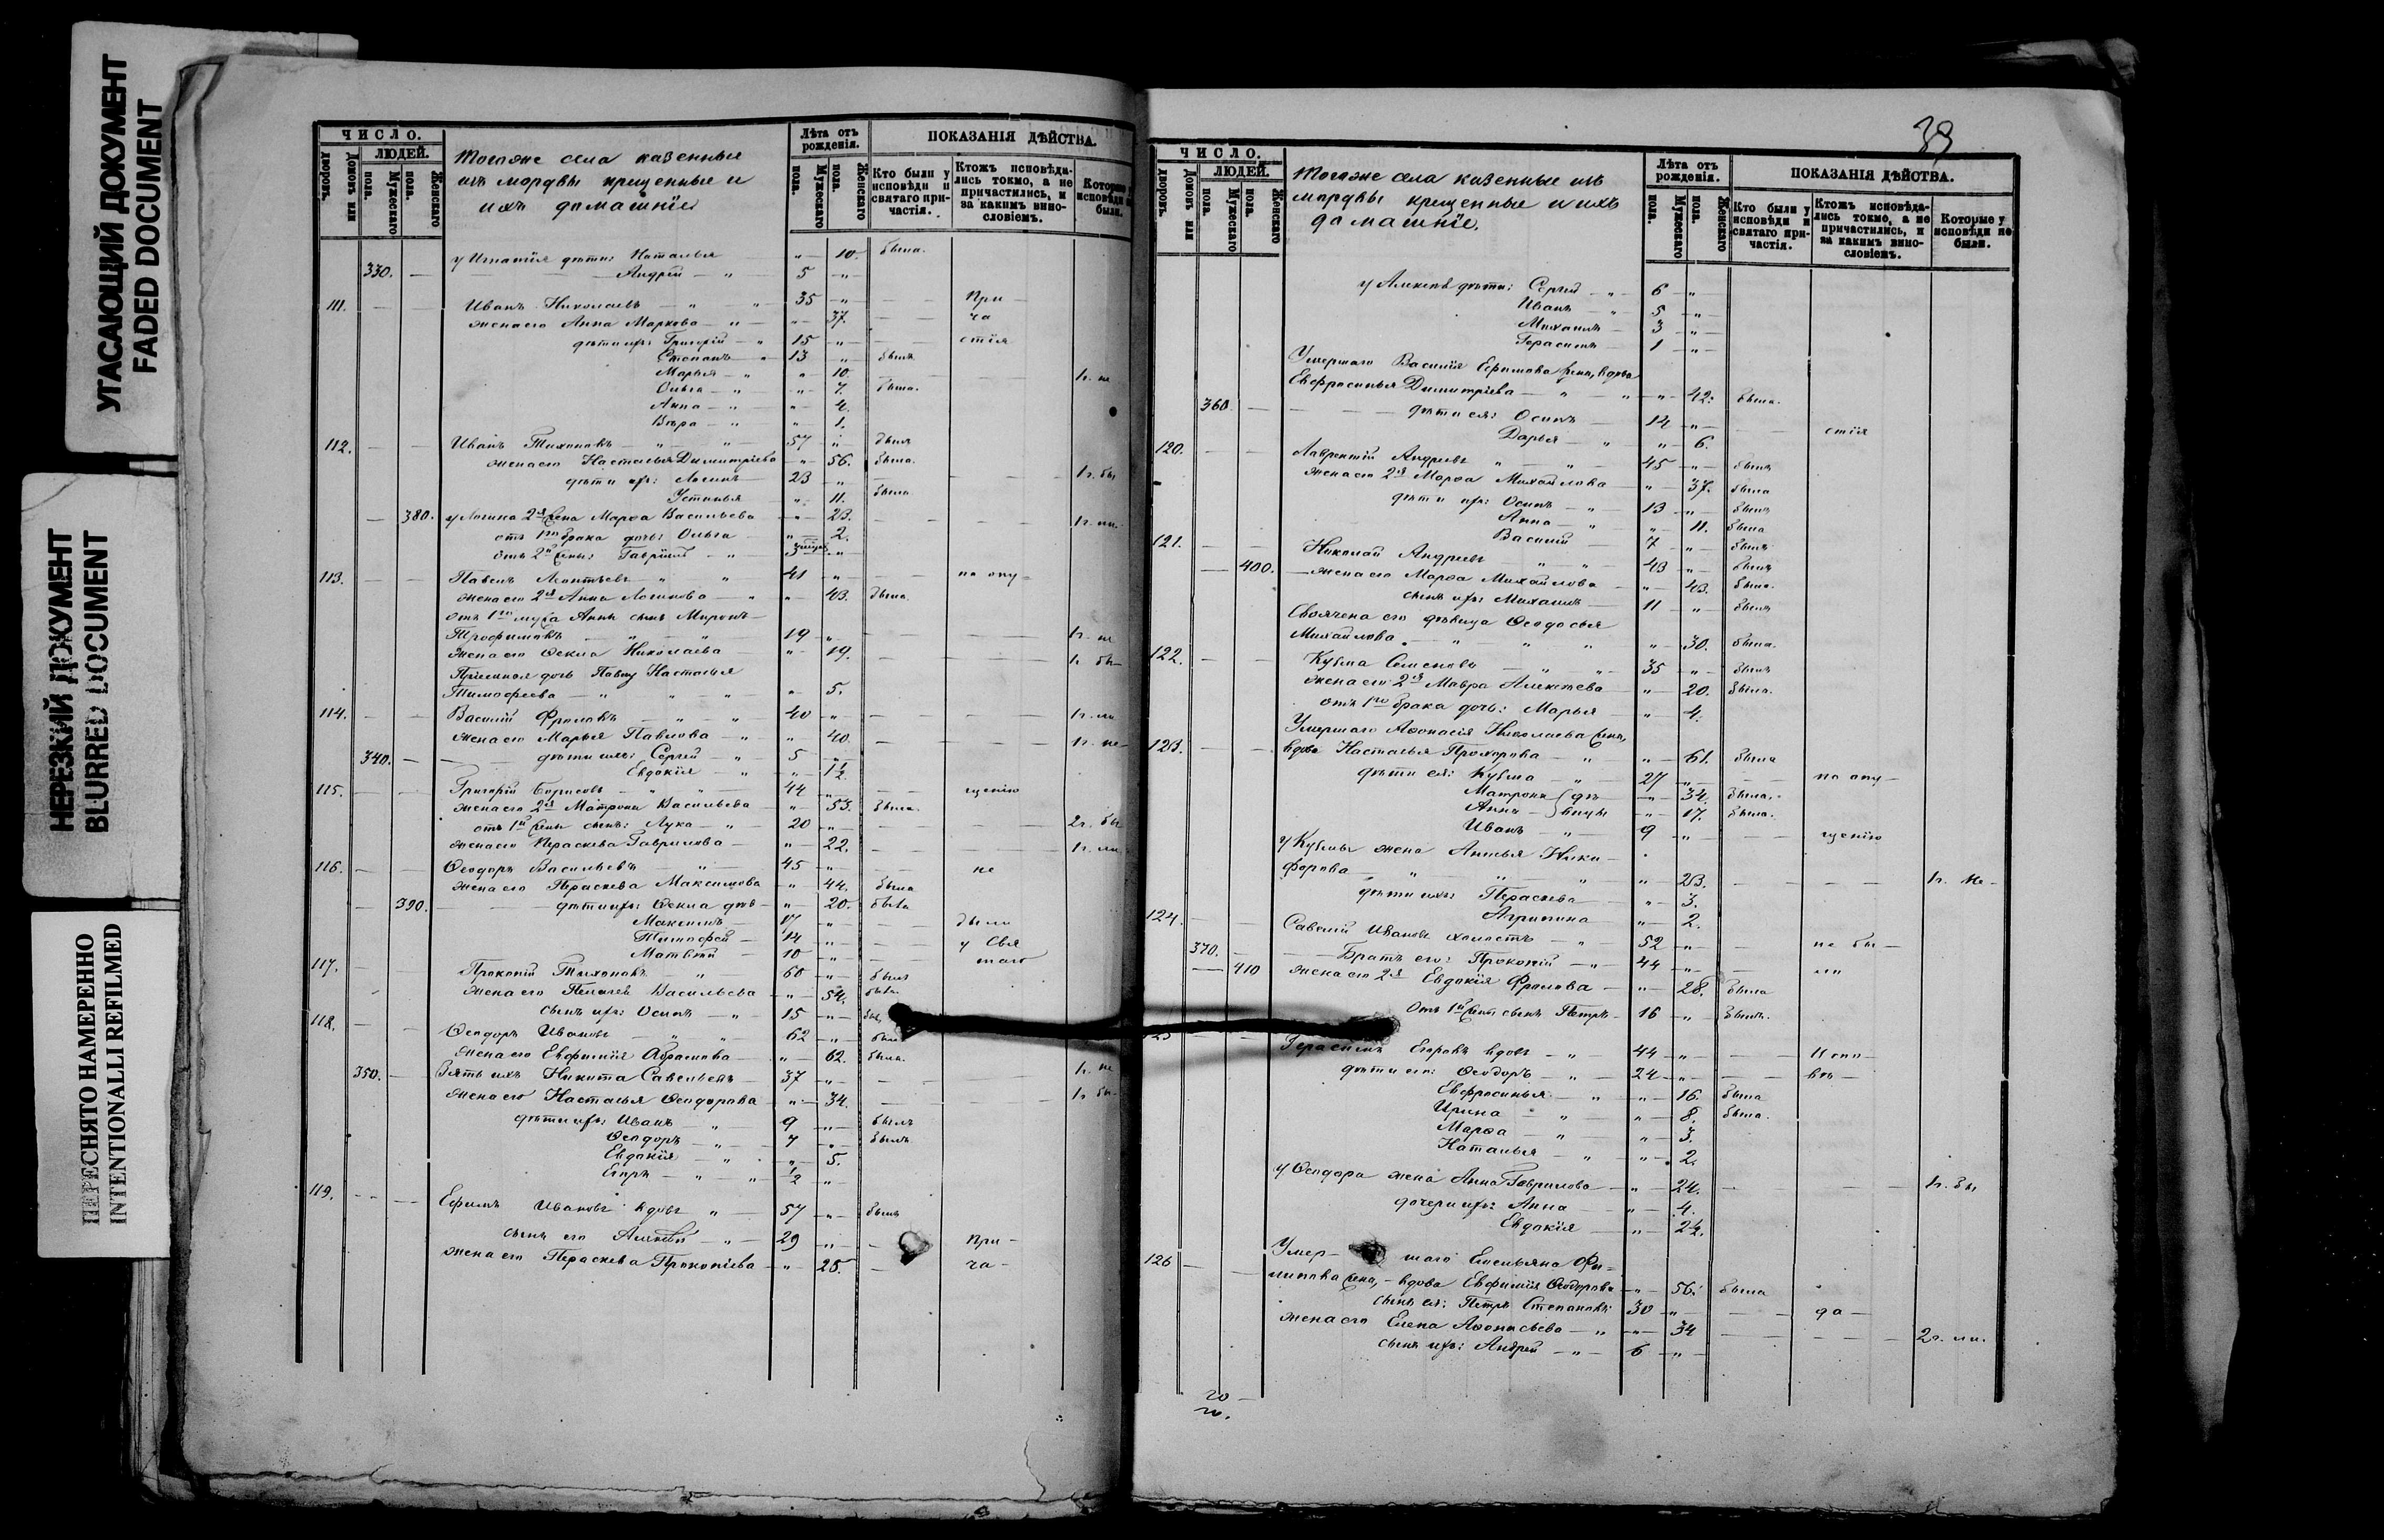 УГАСАЮЩИЙ ДОКУМЕНТ
FADED DOCUMENT
НЕРЕЗКИЙ ДОКУМЕНТ
BLURRED DOCUMENT
ПЕРЕСНЯТО НАМЕРЕННО
INTENTIONALLI REFILMED
ЧИСЛО.
ЛЮДЕЙ.
Домовъ или дворовъ.
Мужескаго пола.
Женскаго пола.
Тогоже села казенные
изъ мордвы крещенные и
ихъ домашніе
Лѣта отъ рожденія.
Мужескаго пола.
Женскаго пола.
ПОКАЗАНІЯ ДѢЙСТВА.
Кто были у исповѣди и святаго причастія.
Ктожъ исповѣдались токмо, а не причастились, и за какимъ винословіемъ.
Которые исповѣди были.
у Игнатія дѣти: Наталья " 10. была.
330. Андрей " 5 "
111. Иванъ Николаевъ " " 35 " При
жена его Анна Маркова " " 37. ча
дѣти ихъ: Григорій " 15 " стія
Степанъ " 13 " былъ
Марья " " 10. 1 г. не
Ольга " " 7. была.
Анна " " 4.
Вѣра " " 1.
112. Иванъ Тихоновъ " " 57 " былъ
жена его Настасья Димитріева " 56. была.
дѣти ихъ: Логинъ 23 " 1 г. бы
Устинья " 11. была
380. у Логина 2я жена Марѳа Васильева " 23.
отъ 1го брака дочь: Ольга " 2.
отъ 2й жены: Гавріилъ "
113. Павелъ Леонтьевъ " " 41 " по опу
жена его 2я Анна Логинова " " 43. была.
отъ 1го мужа Анны сынъ Миронъ
Трофимовъ " " 19 " 1 г. не
жена его Ѳекла Николаева " 19. 1 г. бы
Пріемная дочь Павлу Настасья
Тимофеева " " " " 5.
114. Василій Фроловъ " " 40 "
жена его Марья Павлова " " 40. 1 г. не
340. дѣти ихъ: Сергей " 5 "
Евдокія " " 1½
115. Григорій Борисовъ " " 44 " щенію
жена его 2я Матрона Васильева " 53. была.
отъ 1й жены сынъ: Лука " 20 " 2 г. бы
жена его Параскева Гаврилова " 22.
116. Ѳеодоръ Васильевъ " 45 " не
жена его Параскева Максимова " 44. была
390. дѣти ихъ: Ѳекла дѣв " 20. была
Максимъ 17 " было
Тимофей 14 " у Свя
Матвей 10 " таго
117. Прокопій Тихоновъ " 60 " былъ
жена его Пелагея Васильева " 54. была
сынъ ихъ: Осипъ " 15 "
118. Ѳеодоръ Ивановъ " " 62 " былъ
жена его Евфимія Абрамова " 62. была.
350. Зять ихъ Никита Савельевъ 37 " 1 г. не
жена его Настасья Ѳеодорова " 34. 1 г. бы
дѣти ихъ: Иванъ " 9 " былъ
Ѳеодоръ " 7 " былъ
Евдокія " " 5.
Егоръ " " ½ "
119. Ефимъ Ивановъ вдовъ " 57 " былъ
сынъ его Алексѣй " 29 " При
жена его Параскева Прокопіева " 25. ча
39
ЧИСЛО.
ЛЮДЕЙ.
Домовъ или дворовъ.
Мужескаго пола.
Женскаго пола.
Тогоже села казенные изъ
мордвы крещенные и ихъ
домашніе.
Лѣта отъ рожденія.
Мужескаго пола.
Женскаго пола.
ПОКАЗАНІЯ ДѢЙСТВА.
Кто были у исповѣди и святаго причастія.
Ктожъ исповѣдались токмо, а не причастились, и за какимъ винословіемъ.
Которые у исповѣди не были.
у Алексѣя дѣти: Сергей " 6 "
Иванъ " 5 "
Михаилъ 3 "
Герасимъ 1 "
Умершаго Василія Ефимова жена, вдова
Евфросинья Димитріева " " " 42. была.
360. дѣти ея: Осипъ 14 " стія
Дарья " " 6.
120. Лаврентій Андреевъ " " 45 " былъ
жена его 2я Марѳа Михайлова " 37. была
дѣти ихъ: Осипъ " 13 " былъ
Анна " " 11. была
Василій 7 " былъ
121. Николай Андреевъ " " 43 " былъ
400. жена его Марѳа Михайлова " 43. была.
сынъ ихъ: Михаилъ 11 " былъ
Своячена его дѣвица Ѳеодосья
Михайлова " " " " 30. была.
122. Кузма Семеновъ " " 35 " былъ
жена его 2я Мавра Алексѣева " 20. была.
отъ 1го брака дочь: Марья " 4.
Умершаго Аѳонасія Николаева жена,
123. вдова Настасья Прохорова " " 61. была
дѣти ея: Кузма " 27 " по опу
Матрона } дѣ " 34. была.
Анна } вицы " 17. была.
Иванъ " 9 " щенію
у Кузмы жена Анисья Ники
форова " " " " 23. 1 г. не
дѣти ихъ: Параскева " 3.
Агрипина " 2.
124. Савелій Ивановъ холостъ " 52 " не бы
370. Братъ его: Прокопій " 44 " ли
410 жена его 2я Евдокія Фролова " 28. была
отъ 1й жены сынъ Петръ 16 " былъ.
Герасимъ Егоровъ вдовъ " 44 "
дѣти его: Ѳеодоръ " 24 "
Евфросинья " " 16. была
Ирина " " 8. была.
Марѳа " " 3.
Наталья " " 2.
у Ѳеодора жена Анна Гаврилова " 24. 1 г. бы
дочери ихъ: Анна " 4.
Евдокія " 2½.
126 Умершаго Емельяна Фи
липова жена, вдова Евфимія Ѳеодорова " 56. была
сынъ ея: Петръ Степановъ 30 " да
жена его Елена Аѳонасьева " " 34 2 г. ли.
сынъ ихъ: Андрей " 6 "